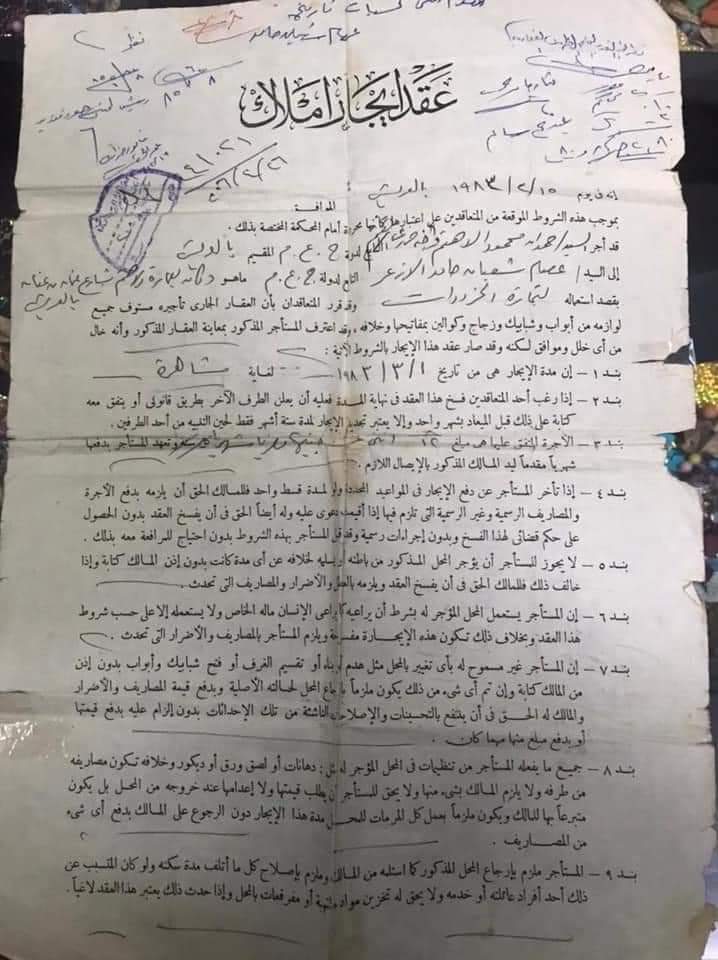 عقد إيجار أملاك
إنه فى يوم ١٩٨٣/٢/١٥ بالعريش
الموافق
بموجب هذه الشروط الموقعة من المتعاقدين على اعتبارها كأنها محررة أمام المحكمة المختصة بذلك .
قد أجر السيد / محمود التابع لدولة ج . ع . م المقيم بالعريش
إلى السيد / عصام شعبان حامد الأزعر التابع لدولة ج . ع . م ماهو
بقصد استعماله لتجارة الخردوات وقد قرر المتعاقدان بأن العقار الجارى تأجيره مستوف جميع بالعريش
لوازمه من أبواب وشبابيك وزجاج وكوالين بمفاتيحها وخلافه ، وقد اعترف المستأجر المذكور بمعاينة العقار المذكور وأنه خال
من أى خلل وموافق لسكنه وقد صار عقد هذا الإيجار بالشروط الآتية :
بند ١ – إن مدة الإيجار هى من تاريخ ١٩٨٣/٣/١ لغاية مشاهرة
بند ٢ – إذا رغب أحد المتعاقدين فسخ هذا العقد فى نهاية المدة فعليه أن يعلن الطرف الآخر بطريق قانونى أو يتفق معه
كتابة على ذلك قبل الميعاد بشهر واحد وإلا يعتبر تجديد الإيجار لمدة ستة أشهر فقط لحين التنبيه من أحد الطرفين .
بند ٣ – الأجرة المتفق عليها هى مبلغ ١٢ وتعهد المستأجر بدفعها
شهرياً مقدماً ليد المالك المذكور بالإيصال اللازم .
بند ٤ – إذا تأخر المستأجر عن دفع الإيجار فى المواعيد المحددة ولو لمدة قسط واحد فللمالك الحق أن يلزمه بدفع الأجرة
والمصاريف الرسمية وغير الرسمية التى تلزم فيها إذا أقيمت دعوى عليه وله أيضاً الحق فى أن يفسخ العقد بدون الحصول
على حكم قضائى لهذا الفسخ وبدون إجراءات رسمية وقد قبل المستأجر بهذه الشروط بدون احتياج للمرافعة معه بذلك .
بند ٥ – لا يجوز للمستأجر أن يؤجر المحل المذكور من باطنه ويسلمه لخلافه عن أى مدة كانت بدون إذن المالك كتابة وإذا
خالف ذلك فللمالك الحق فى أن يفسخ العقد ويلزمه بالعطل والأضرار والمصاريف التى تحدث .
بند ٦ – إن المستأجر يستعمل المحل المؤجر له بشرط أن يراعيه كما يراعى الإنسان ماله الخاص ولا يستعمله إلا على حسب شروط
هذا العقد وبخلاف ذلك تكون هذه الإيجارة مفسوخة ويلزم المستأجر بالمصاريف والأضرار التى تحدث .
بند ٧ – إن المستأجر غير مسموح له بأى تغيير بالمحل مثل هدم أو بناء أو تقسيم الغرف أو فتح شبابيك وأبواب بدون إذن
من المالك كتابة وإن تم أى شىء من ذلك يكون ملزماً بإرجاع المحل لحالته الأصلية وبدفع قيمة المصاريف والأضرار
والمالك له الحق فى أن ينتفع بالتحسينات والإصلاحات الناشئة من تلك الإحداثات بدون إلزام عليه بدفع قيمتها
أو بدفع مبلغ منها مهما كان .
بند ٨ – جميع ما يفعله المستأجر من تنظيمات فى المحل المؤجر له مثل : دهانات أو لصق ورق أو ديكور وخلافه تكون مصاريفه
من طرفه ولا يلزم المالك بشىء منها ولا يحق للمستأجر أن يطلب قيمتها ولا إعدامها عند خروجه من المحل بل يكون
متبرعاً بها للمالك ويكون ملزماً بعمل كل المرمات للمحل مدة هذا الإيجار دون الرجوع على المالك بدفع أى شىء
من المصاريف .
بند ٩ – المستأجر ملزم بإرجاع المحل المذكور كما استلمه من المالك وملزم بإصلاح كل ما أتلف مدة سكنه ولو كان المتسبب عن
ذلك أحد أفراد عائلته أو خدمه ولا يحق له تخزين مواد ملتهبة أو مفرقعات بالمحل وإذا حدث ذلك يعتبر هذا العقد لاغياً .